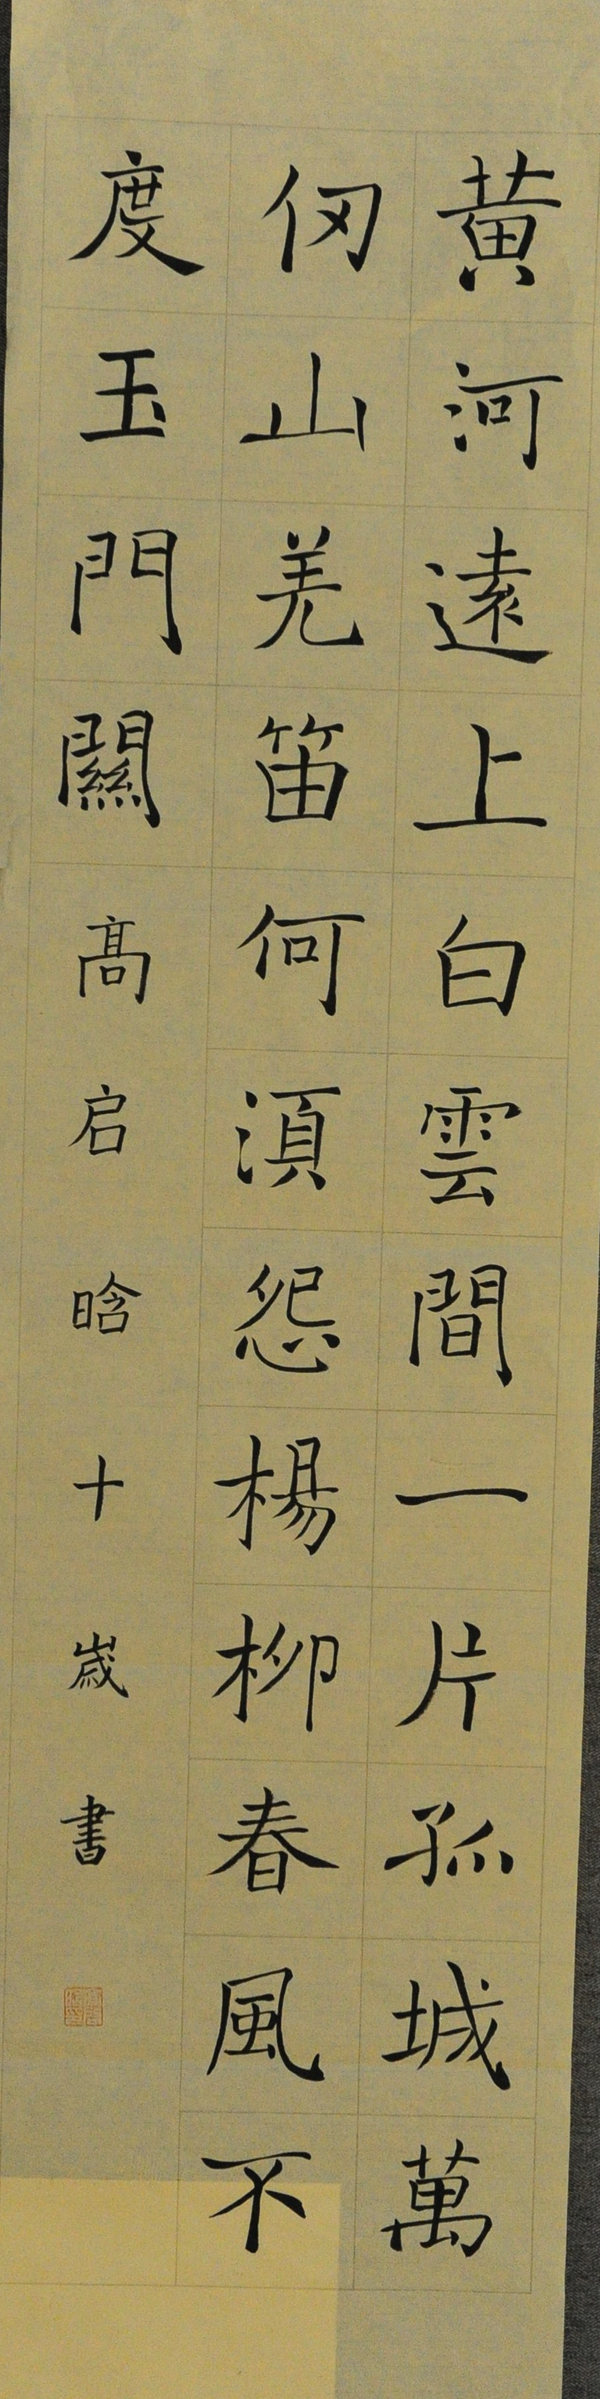 黄河遠上白雲間一片孤城萬
仞山羌笛何湏怨楊柳春風不
度玉門關高启晗十歳書